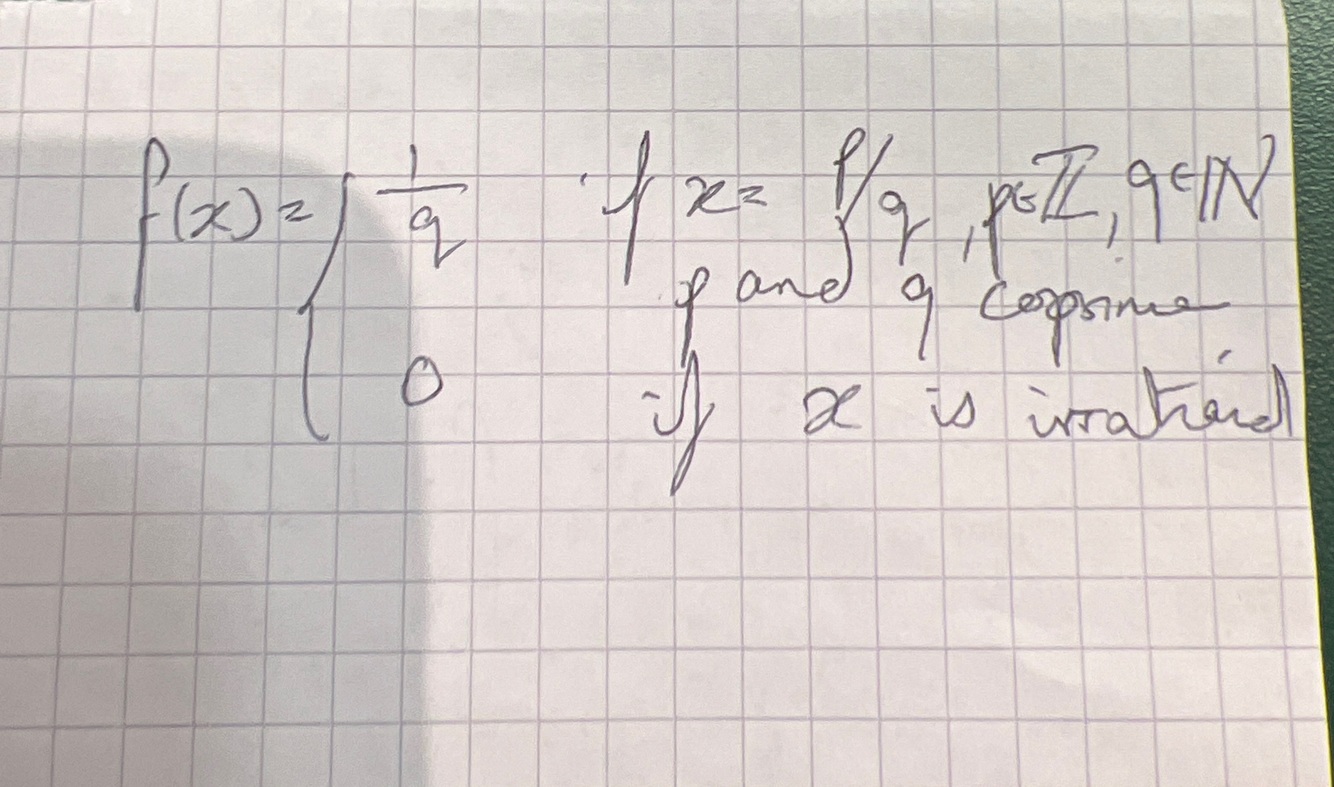 f(x) = { 1/q if x = p/q, p∈ℤ, q∈ℕ
p and q coprime
0 if x is irrational